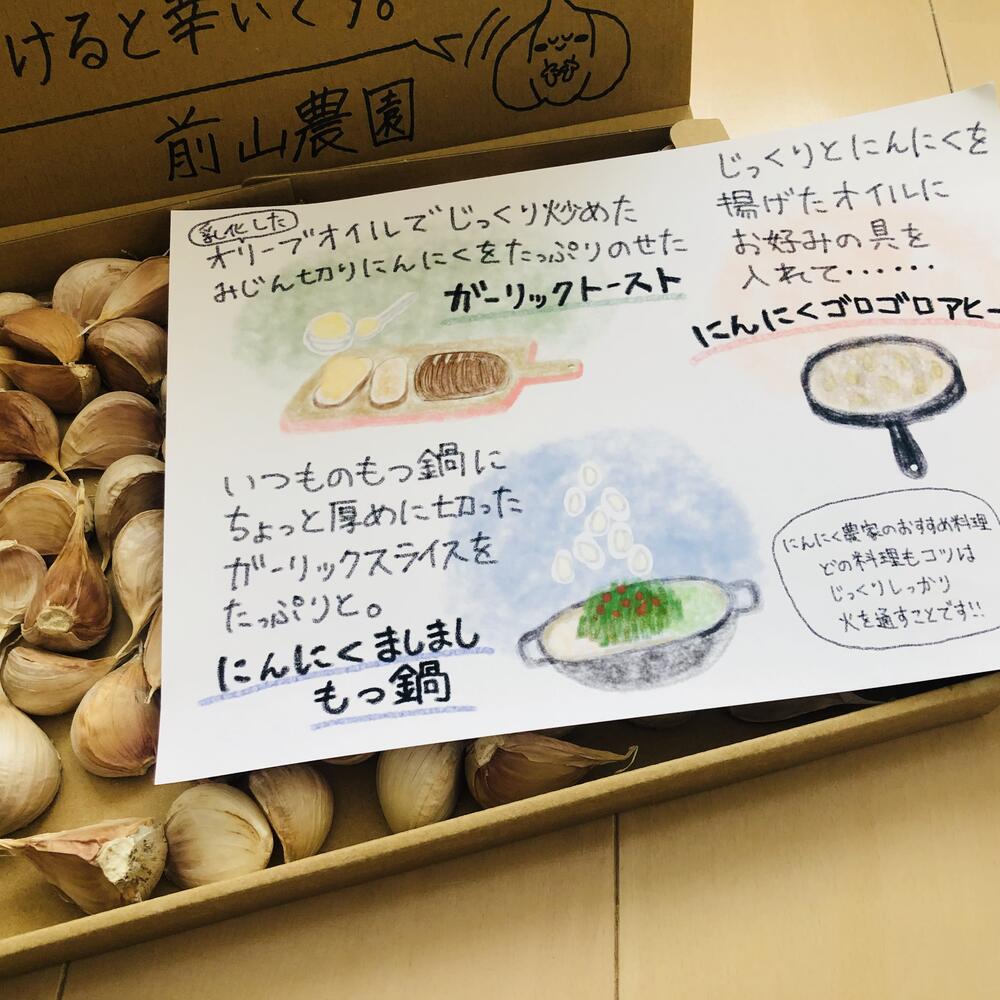 けると辛いです。
前山農園
乳化した
オリーブオイルでじっくり炒めた
みじん切りにんにくをたっぷりのせた
ガーリックトースト
じっくりとにんにくを
揚げたオイルに
お好みの具を
入れて・・・・・・
にんにくゴロゴロアヒー
いつものもつ鍋に
ちょっと厚めに切った
ガーリックスライスを
たっぷりと。
にんにくましまし
もつ鍋
にんにく農家のおすすめ料理
どの料理もコツは
じっくりしっかり
火を通すことです!!